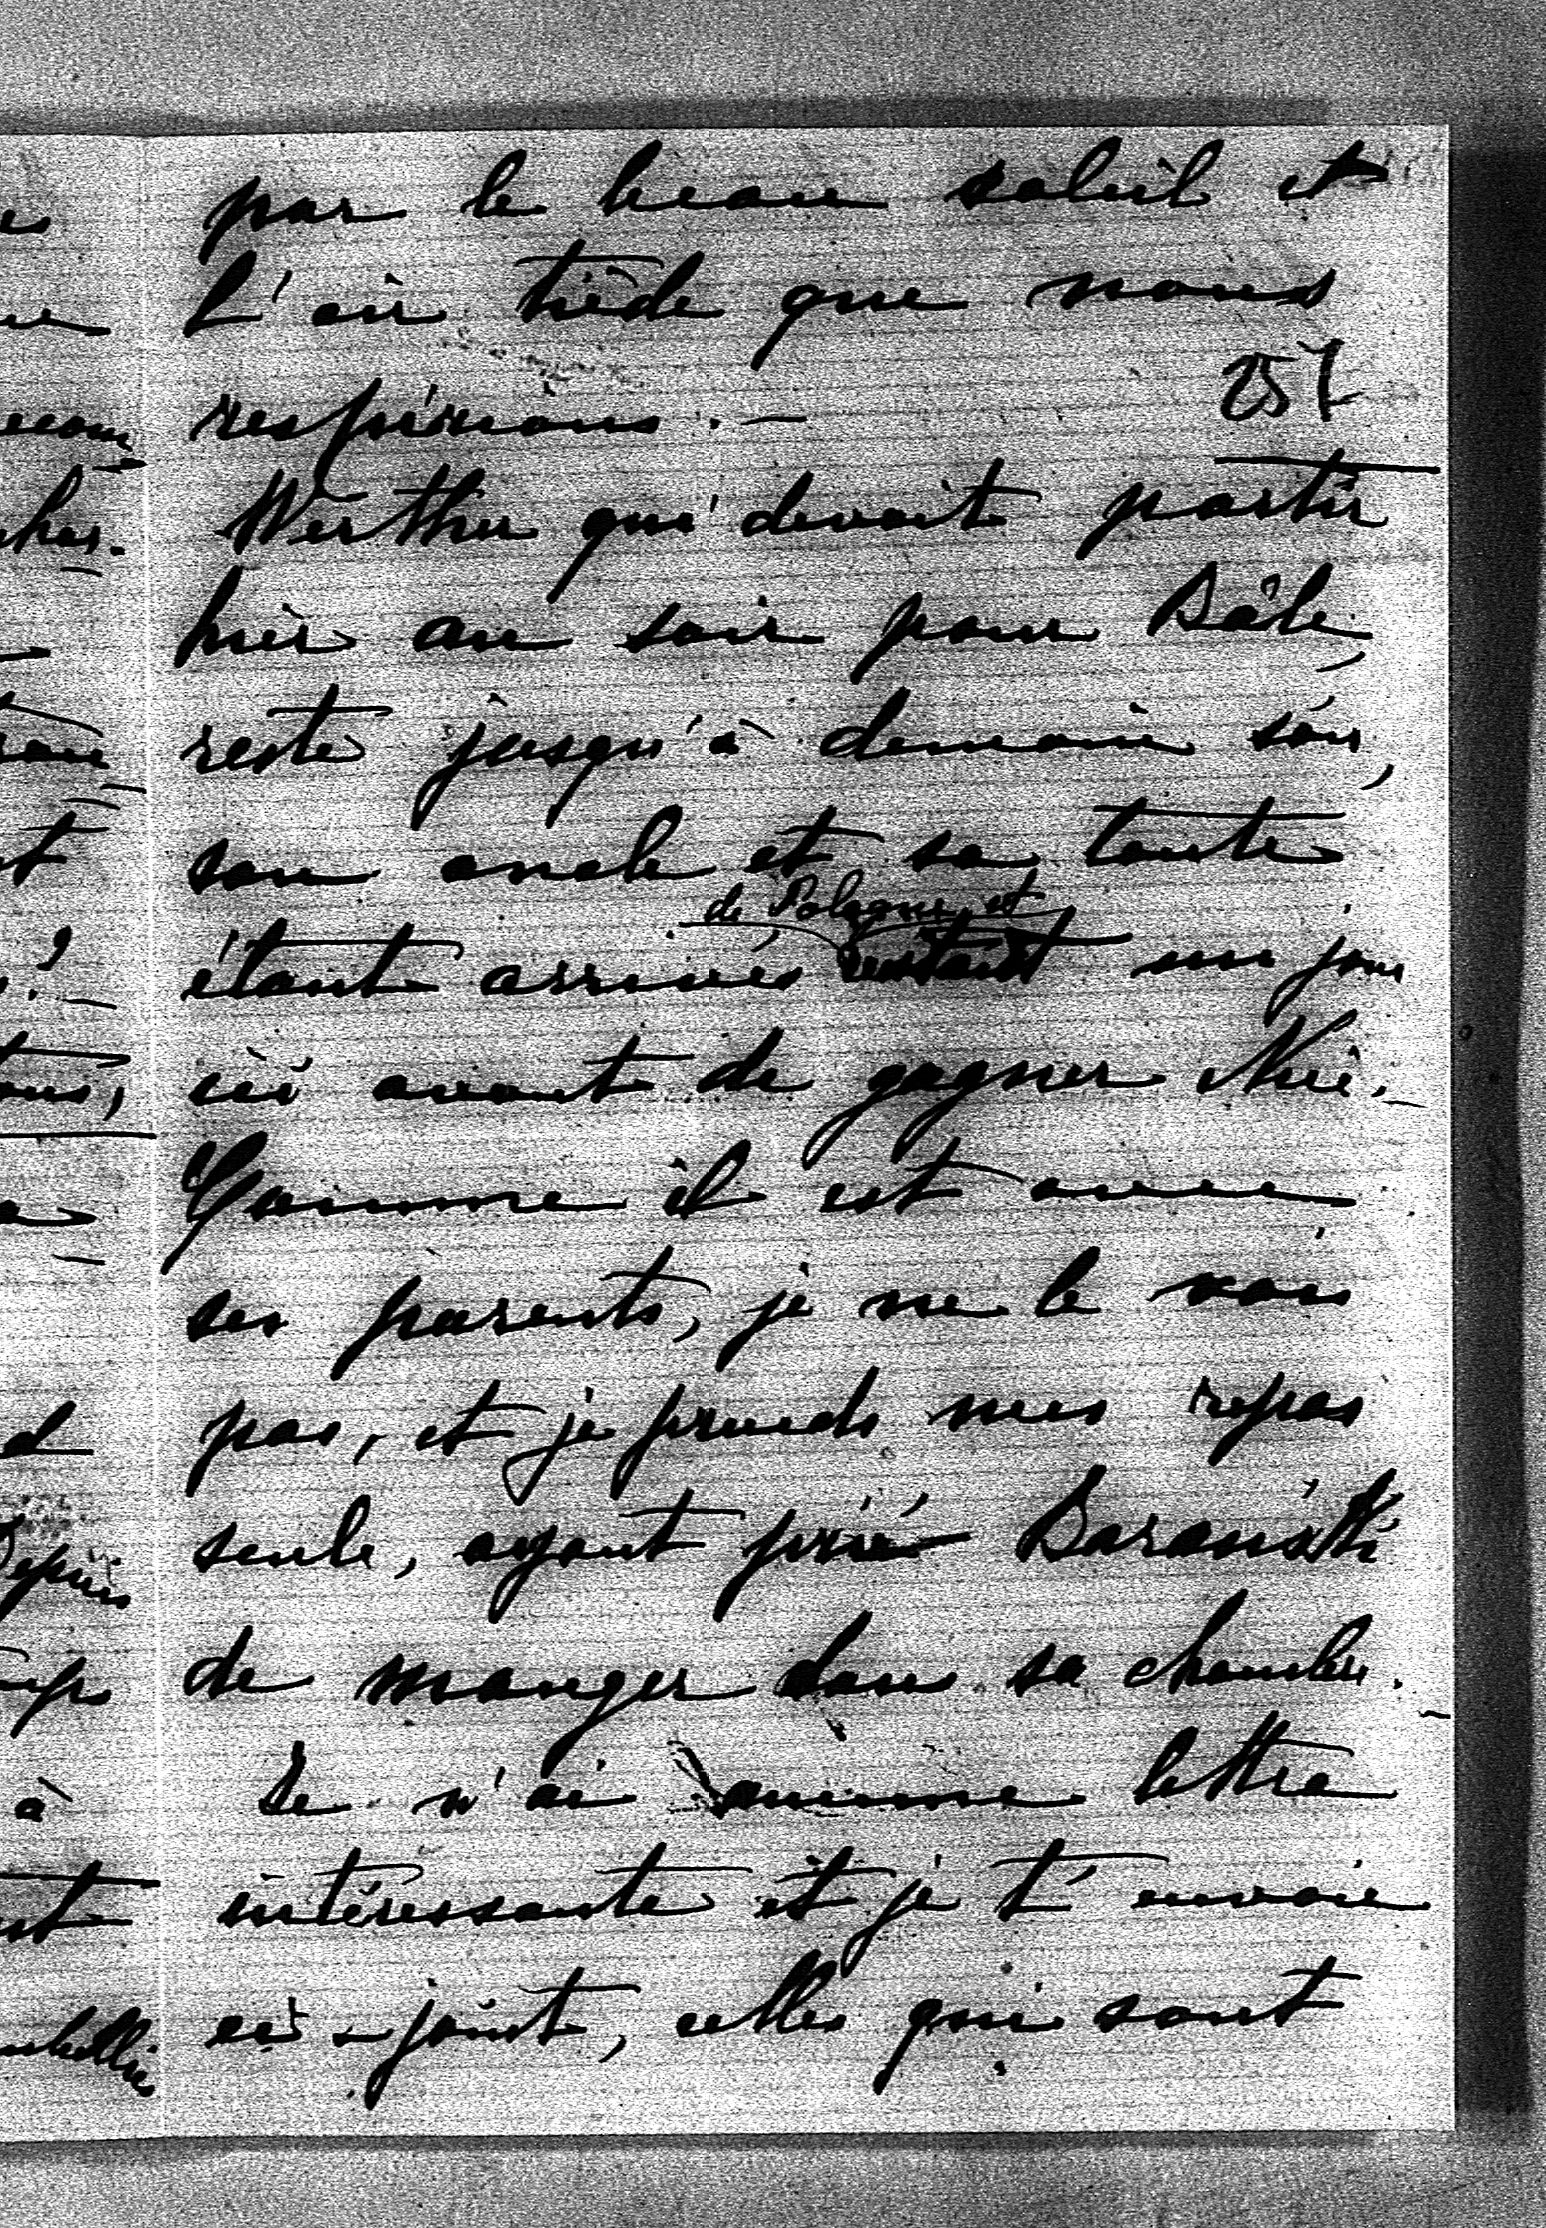 par le beau soleil et
l'air tiède que nous
respirions. —
257
Werther qui devait partir
hier au soir pour Bâle,
reste jusqu'à demain soir,
son oncle et sa tante
de Pologne, et
étant arrivés restant un jour
ici avant de gagner Nice. —
Comme il est avec
ses parents, je ne le vois
pas, et je prends mes repas
seule, ayant prié Baranski
de manger dans sa chambre. —
Je n'ai aucune lettre
intéressante et je t'envoie
ci-joint, celles qui sont